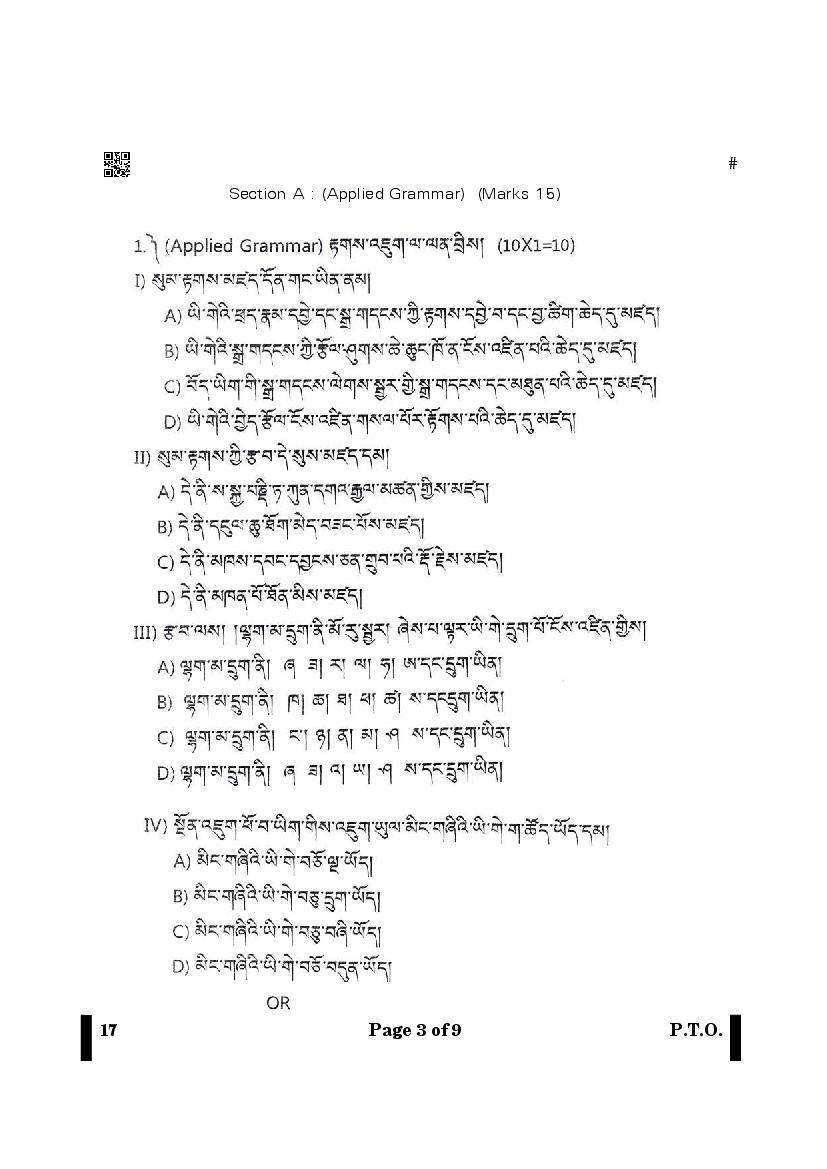 #
Section A : (Applied Grammar) (Marks 15)
1.༽ (Applied Grammar) རྟགས་འཇུག་ལ་ལན་བྲིས། (10X1=10)
I) སུམ་རྟགས་མཛད་དོན་གང་ཡིན་ནམ།
A) ཡི་གེའི་ཕྲད་རྣམ་དབྱེ་དང་སྒྲ་གདངས་ཀྱི་རྟགས་དབྱེ་བ་དང་བྱ་ཚིག་ཆེད་དུ་མཛད།
B) ཡི་གེའི་སྒྲ་གདངས་ཀྱི་རྩོལ་ཤུགས་ཆེ་ཆུང་ཁོ་ན་ངོས་འཛིན་པའི་ཆེད་དུ་མཛད།
C) བོད་ཡིག་གི་སྒྲ་གདངས་ལེགས་སྦྱར་གྱི་སྒྲ་གདངས་དང་མཐུན་པའི་ཆེད་དུ་མཛད།
D) ཡི་གེའི་བྱེད་རྩོལ་ངོས་འཛིན་གསལ་པོར་རྟོགས་པའི་ཆེད་དུ་མཛད།
II) སུམ་རྟགས་ཀྱི་རྩ་བ་དེ་སུས་མཛད་དམ།
A) དེ་ནི་ས་སྐྱ་པཎྜི་ཏ་ཀུན་དགའ་རྒྱལ་མཚན་གྱིས་མཛད།
B) དེ་ནི་དངུལ་ཆུ་ཐོག་མེད་བཟང་པོས་མཛད།
C) དེ་ནི་མཁས་དབང་དབྱངས་ཅན་གྲུབ་པའི་རྡོ་རྗེས་མཛད།
D) དེ་ནི་མཁན་པོ་ཐོན་མིས་མཛད།
III) རྩ་བ་ལས། །ལྷག་མ་དྲུག་ནི་མོ་རུ་སྦྱར། ཞེས་པ་ལྟར་ཡི་གེ་དྲུག་པོ་ངོས་འཛིན་གྱིས།
A) ལྷག་མ་དྲུག་ནི། ཞ ཟ། ར། ལ། ཧ། ཨ་དང་དྲུག་ཡིན།
B) ལྷག་མ་དྲུག་ནི། ཁ། ཆ། ཐ། ཕ། ཚ། ས་དངདྲུག་ཡིན།
C) ལྷག་མ་དྲུག་ནི། ང་། ཉ། ན། མ། ཤ ས་དང་དྲུག་ཡིན།
D) ལྷག་མ་དྲུག་ནི། ཞ ཟ། འ། ཡ། ཤ ས་དང་དྲུག་ཡིན།
IV) སྔོན་འཇུག་ཕོ་བ་ཡིག་གིས་འཇུག་ཡུལ་མིང་གཞིའི་ཡི་གེ་ག་ཚོད་ཡོད་དམ།
A) མིང་གཞིའི་ཡི་གེ་བཅོ་ལྔ་ཡོད།
B) མིང་གཞིའི་ཡི་གེ་བཅུ་དྲུག་ཡོད།
C) མིང་གཞིའི་ཡི་གེ་བཅུ་བཞི་ཡོད།
D) མིང་གཞིའི་ཡི་གེ་བཅོ་བདུན་ཡོད།
OR
17 Page 3 of 9 P.T.O.